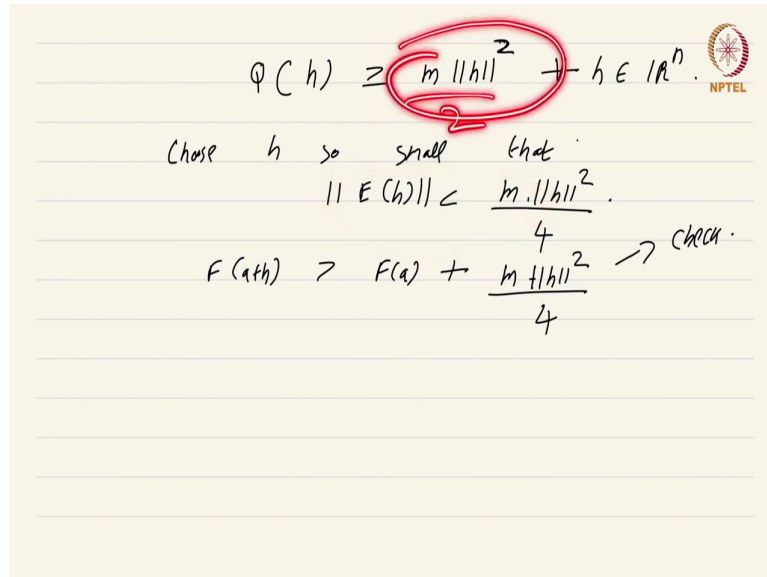 Q(h) ≥ m ||h||² / 2 ∀ h ∈ ℝⁿ.
NPTEL
Chose h so small that
||E(h)|| < m.||h||² / 4.
F(a+h) > F(a) + m ||h||² / 4 → check.